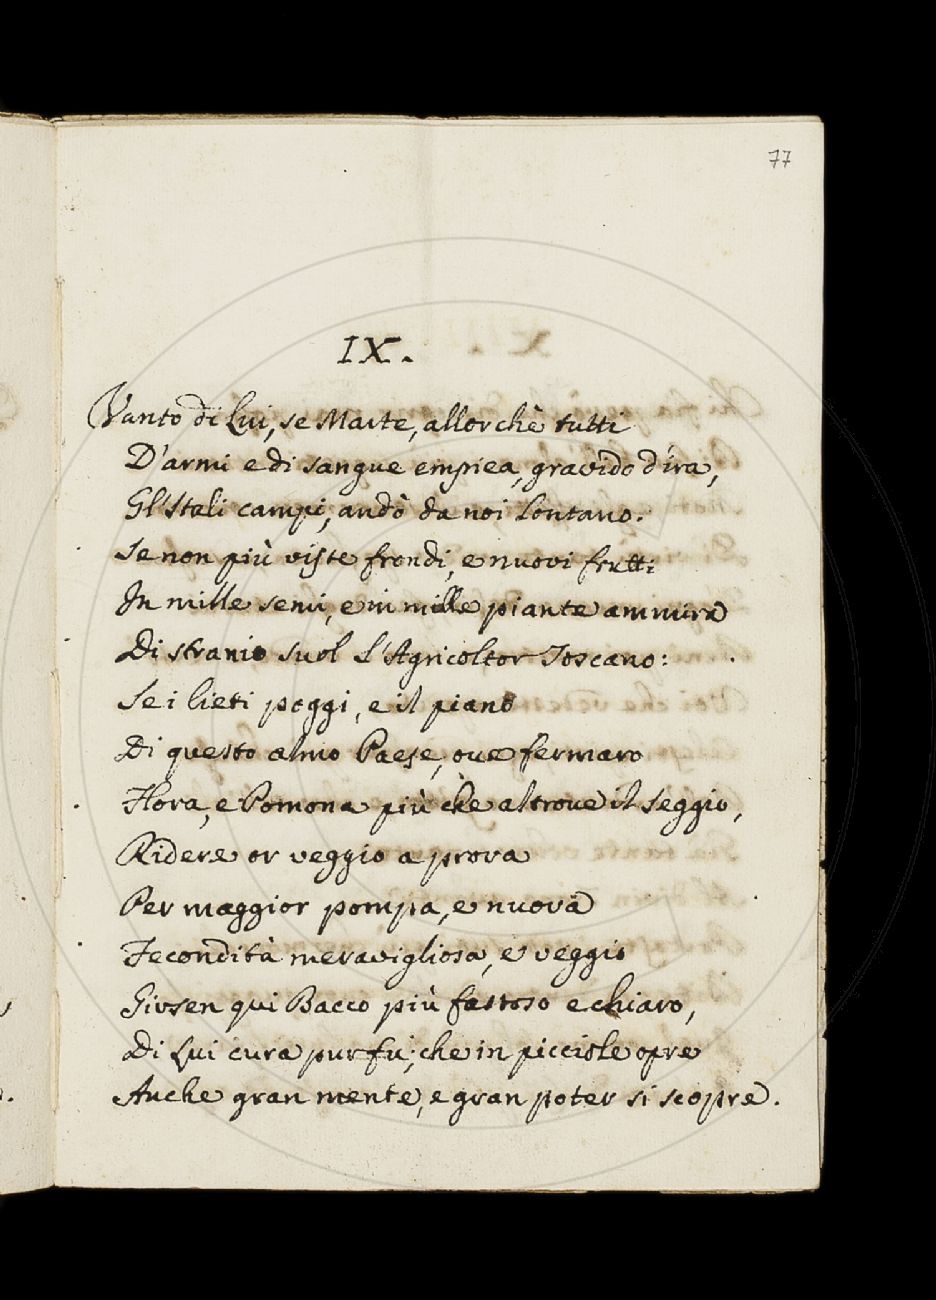 77
IX.
Vanto di Lui, se Marte, allorchè tutti
D'armi e di sangue empiea, gravido d'ira,
Gl'Itali campi, andò da noi lontano.
Se non più viste frondi, e nuovi frutti
In mille semi, e in mille piante ammira
Di stranio suol l'Agricoltor Toscano:
Se i lieti poggi, e il piano
Di questo almo Paese, ove fermaro
Flora, e Pomona più che altrove il seggio,
Ridere or veggio a prova
Per maggior pompa, e nuova
Fecondità meravigliosa, e veggio
Girsen qui Bacco più fastoso e chiaro,
Di Lui cura pur fu; che in picciole opre
Anche gran mente, e gran poter si scopre.